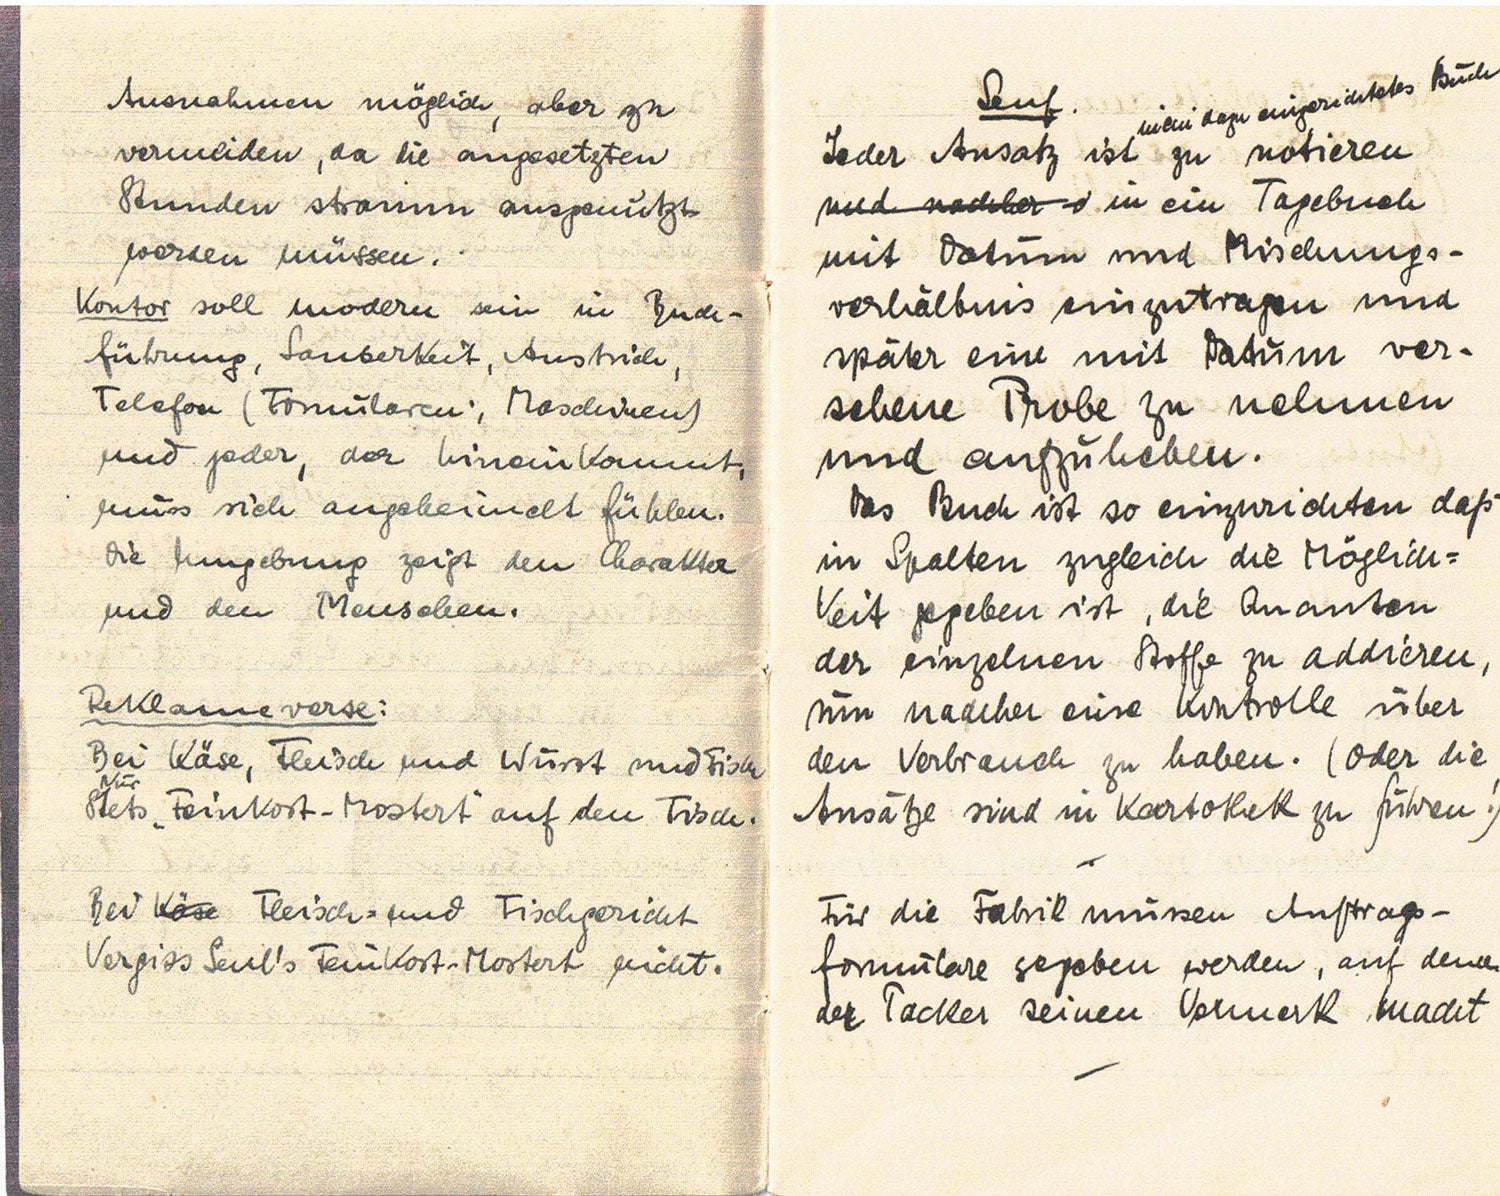 Ausnahmen möglich, aber zu
vermeiden, da die angesetzten
Stunden stramm ausgenützt
werden müssen.
Kontor soll modern sein in Buch-
führung, Sauberkeit, Anstrich,
Telefon (Formularen, Maschinen)
und jeder, der hineinkommt,
muss sich angeheimelt fühlen.
Die Umgebung zeigt den Charakter
und den Menschen.
Reklameverse:
Bei Käse, Fleisch und Wurst und Fisch
Nur
Stets „Feinkost-Mostert“ auf den Tisch.
Bei Käse Fleisch- und Fischgericht
Vergiss Senf's Feinkost-Mostert nicht.
Senf.
in ein dazu eingerichtetes Buch
Jeder Ansatz ist zu notieren
und nachher in ein Tagebuch
mit Datum und Mischungs-
verhältnis einzutragen und
später eine mit Datum ver-
sehene Probe zu nehmen
und aufzuheben.
Das Buch ist so einzurichten daß
in Spalten zugleich die Möglich=
keit gegeben ist, die Quanten
der einzelnen Stoffe zu addieren,
um nachher eine Kontrolle über
den Verbrauch zu haben. (Oder die
Ansätze sind in Kartothek zu führen!)
Für die Fabrik müssen Auftrags-
formulare gegeben werden, auf denen
der Packer seinen Vermerk macht